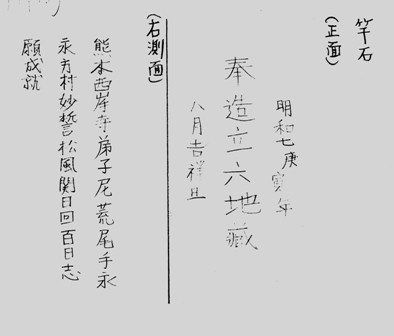 竿石
(正面)
明和七庚寅年
奉造立六地蔵
八月吉祥旦
(右測面)
熊本西岸寺弟子尼荒尾手永
永方村妙誓松風関日回百日志
願成就